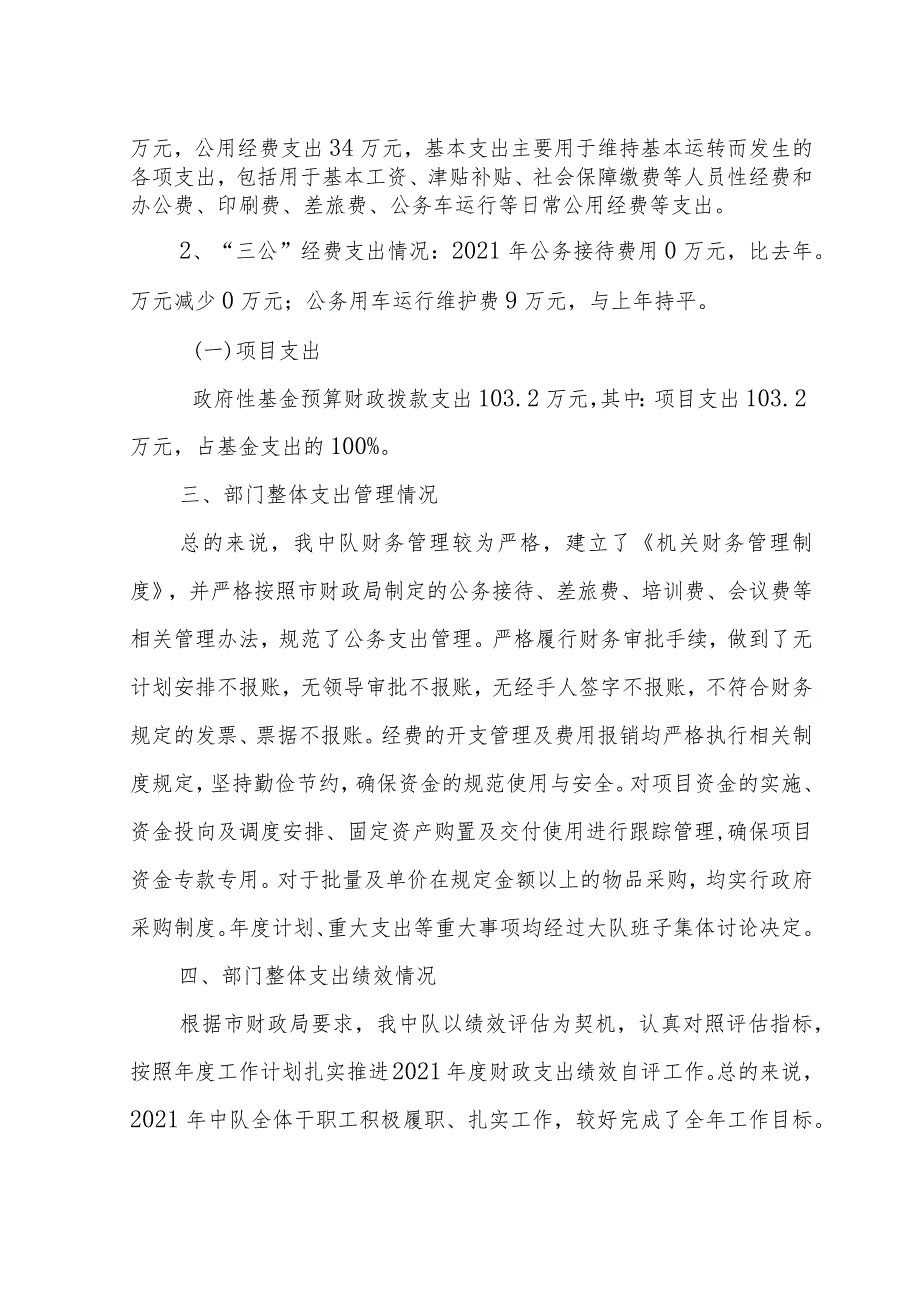 万元，公用经费支出34万元，基本支出主要用于维持基本运转而发生的
各项支出，包括用于基本工资、津贴补贴、社会保障缴费等人员性经费和
办公费、印刷费、差旅费、公务车运行等日常公用经费等支出。
2、“三公”经费支出情况：2021年公务接待费用0万元，比去年。
万元减少0万元；公务用车运行维护费9万元，与上年持平。
(一)项目支出
政府性基金预算财政拨款支出103.2万元,其中：项目支出103.2
万元，占基金支出的100%。
三、部门整体支出管理情况
总的来说，我中队财务管理较为严格，建立了《机关财务管理制
度》，并严格按照市财政局制定的公务接待、差旅费、培训费、会议费等
相关管理办法，规范了公务支出管理。严格履行财务审批手续，做到了无
计划安排不报账，无领导审批不报账，无经手人签字不报账，不符合财务
规定的发票、票据不报账。经费的开支管理及费用报销均严格执行相关制
度规定，坚持勤俭节约，确保资金的规范使用与安全。对项目资金的实施、
资金投向及调度安排、固定资产购置及交付使用进行跟踪管理,确保项目
资金专款专用。对于批量及单价在规定金额以上的物品采购，均实行政府
采购制度。年度计划、重大支出等重大事项均经过大队班子集体讨论决定。
四、部门整体支出绩效情况
根据市财政局要求，我中队以绩效评估为契机，认真对照评估指标，
按照年度工作计划扎实推进2021年度财政支出绩效自评工作。总的来说，
2021年中队全体干职工积极履职、扎实工作，较好完成了全年工作目标。